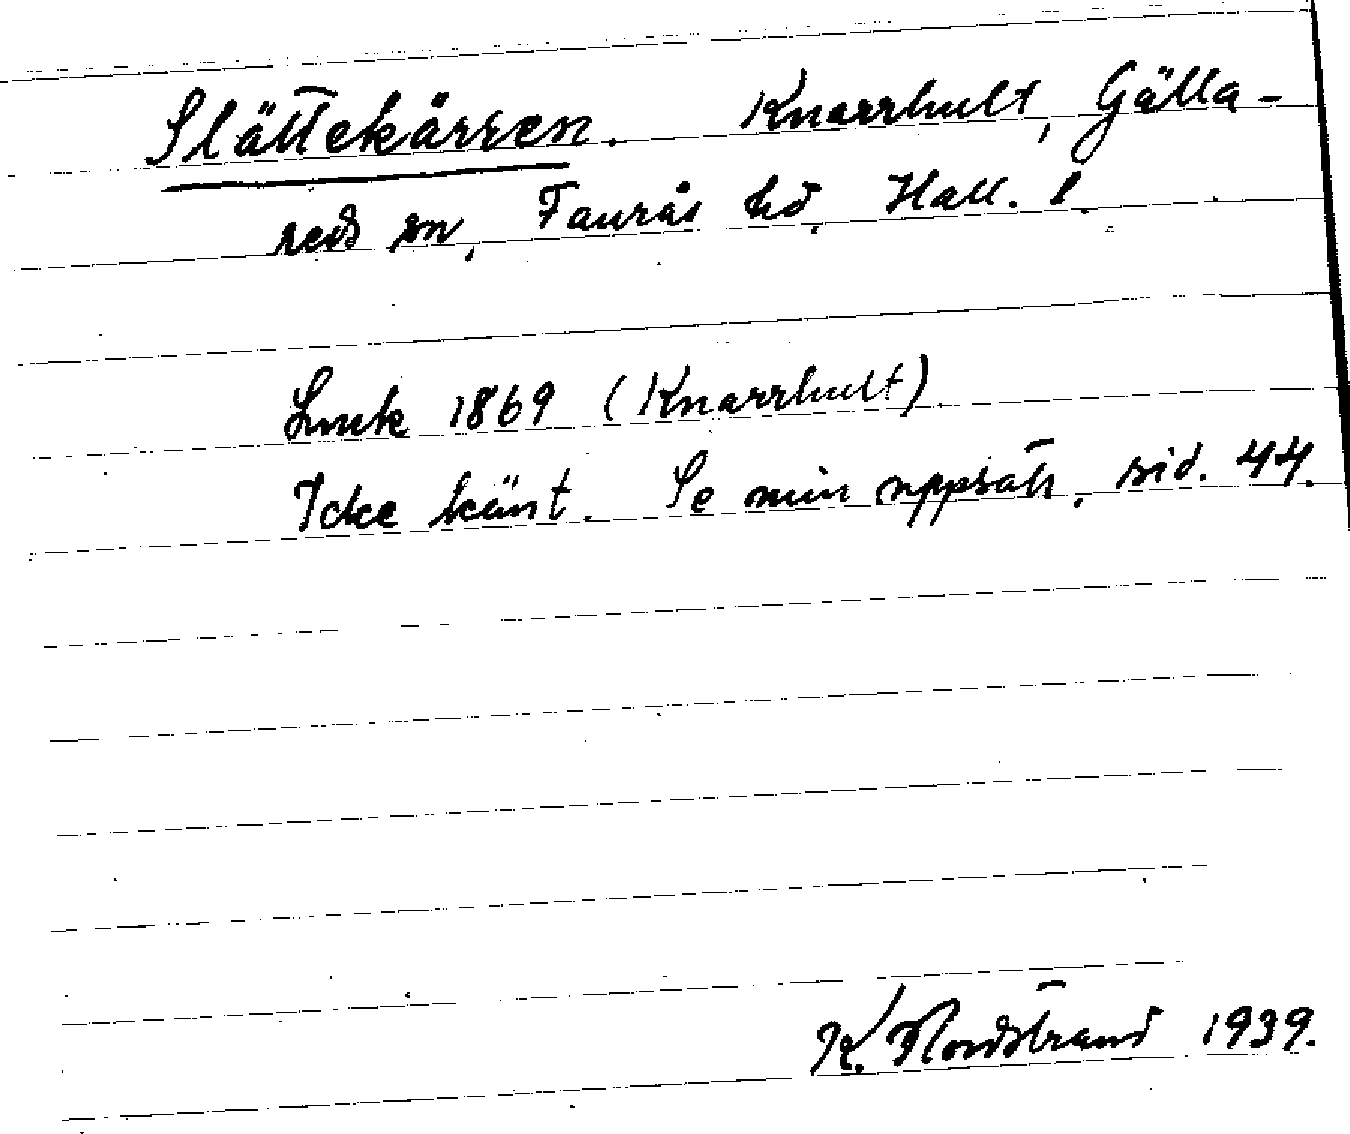 Slättekärren. Knarrhult, Gälla-
reds sn, Faurås hd, Hall. l.
Lmtk 1869 (Knarrhult).
Icke känt. Se min uppsats, sid. 44.
K. Nordstrand 1939.